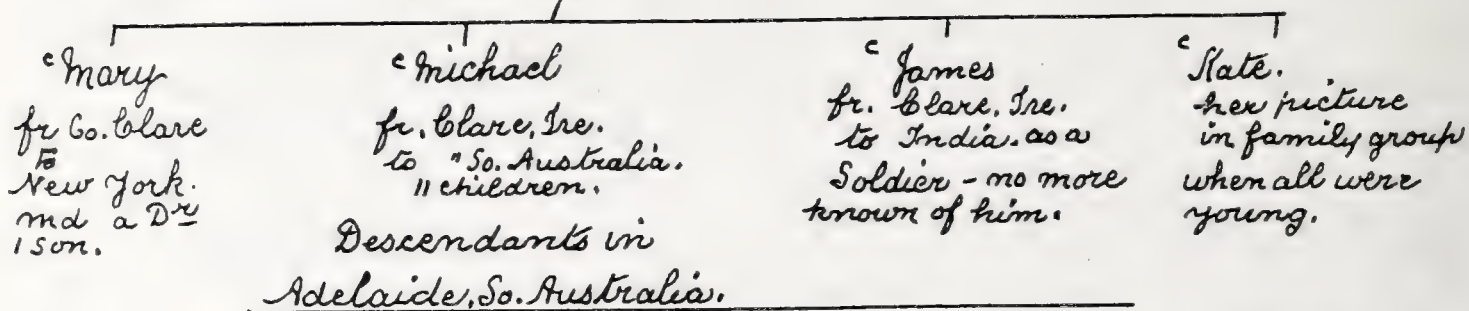 c Mary
fr Co. Clare
to
New York.
md a Dr
1 son.
c Michael
fr. Clare, Ire.
to "So. Australia.
11 children.
Descendants in
Adelaide, So. Australia.
c James
fr. Clare, Ire.
to India. as a
Soldier - no more
known of him.
c Kate.
her picture
in family group
when all were
young.